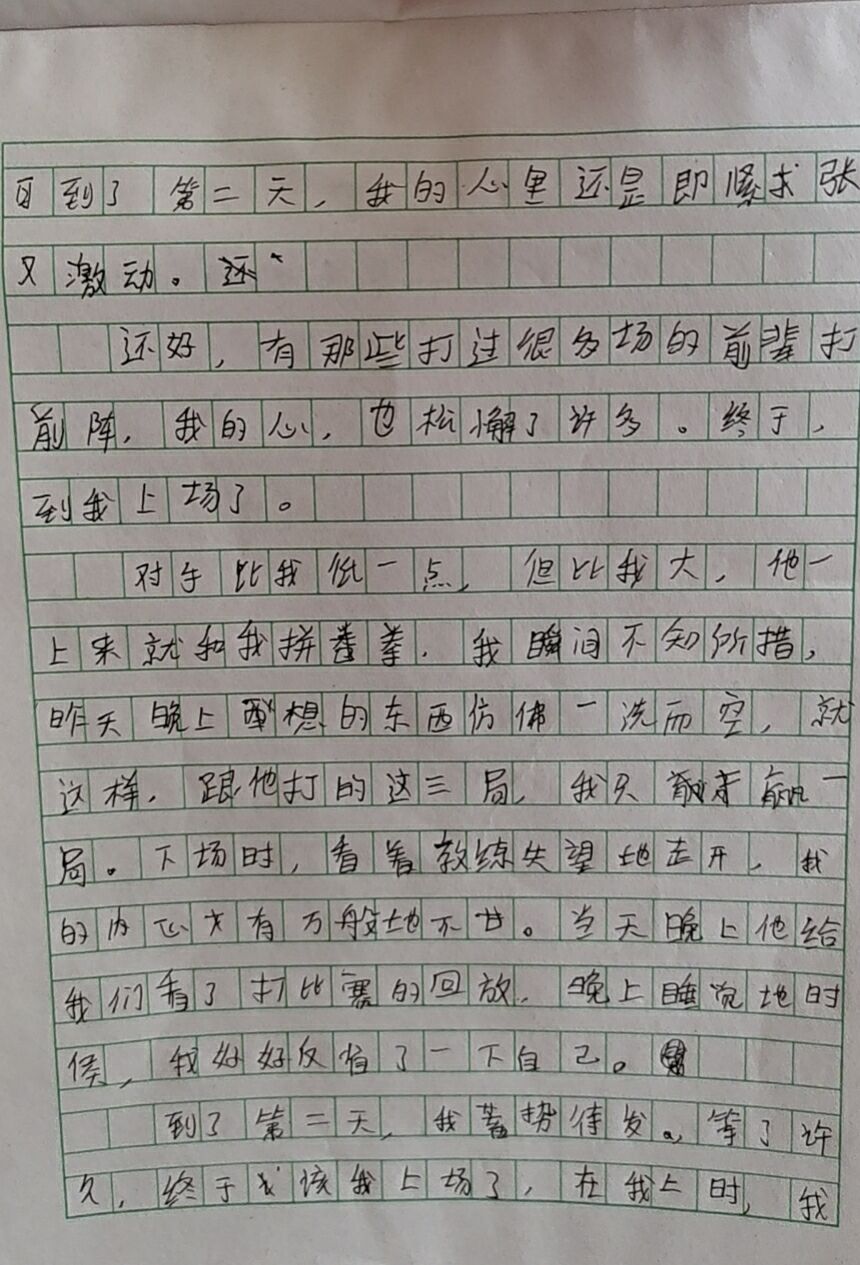 到了第二天，我的心里还是即紧张
又激动。还
还好，有那些打过很多场的前辈打
前阵，我的心，也松懈了许多。终于，
到我上场了。
对手比我低一点，但比我大，他一
上来就和我拼拳，我瞬间不知所措，
昨天晚上想的东西仿佛一洗而空，就
这样，跟他打的这三局，我只赢一
局。下场时，看着教练失望地走开，我
的内心有万般地不甘。当天晚上他给
我们看了打比赛的回放，晚上睡觉地时
候，我好好反省了一下自己。
到了第二天，我蓄势待发。等了许
久，终于该我上场了，在我上时，我